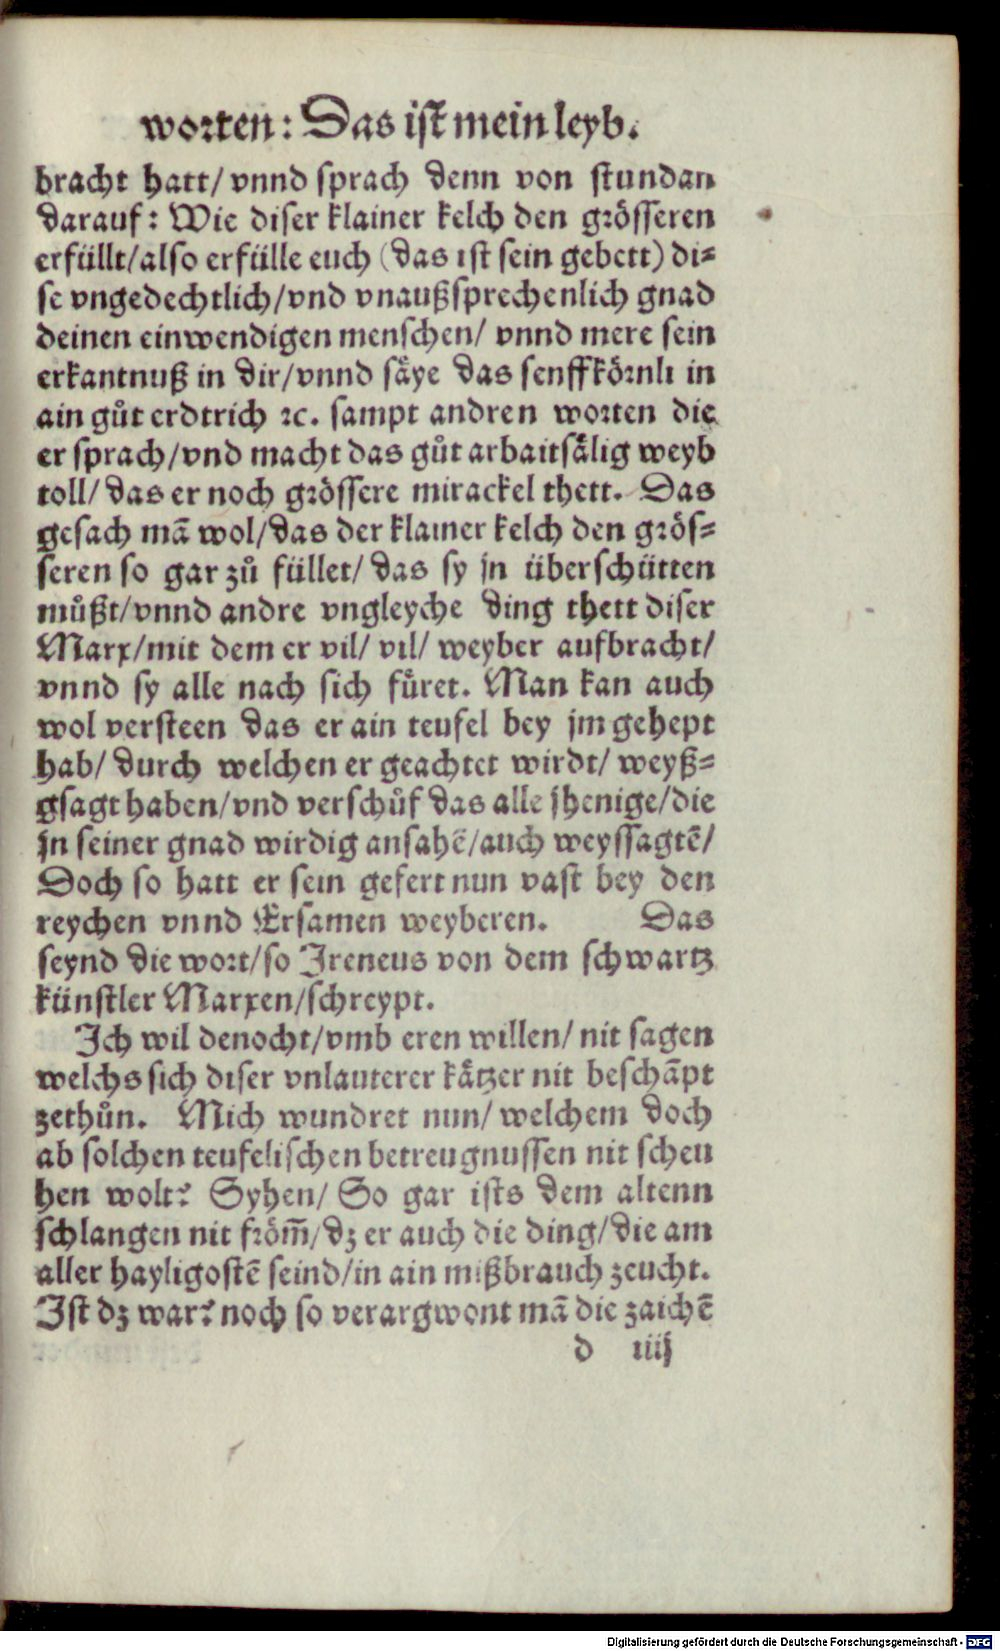 worten: Das ist mein leyb.
bracht hatt/ vnnd sprach denn von stundan
darauf: Wie diser klainer kelch den grösseren
erfüllt/also erfülle euch (das ist sein gebett) di⸗
se vngedechtlich/vnd vnaußsprechenlich gnad
deinen einwendigen menschen/ vnnd mere sein
erkantnuß in dir/vnnd säye das senffkörnli in
ain gůt erdtrich ꝛc. sampt andren worten die
er sprach/vnd macht das gůt arbaitsälig weyb
toll/ das er noch grössere mirackel thett. Das
gesach mā wol/das der klainer kelch den grös⸗
seren so gar zů füllet/ das sy jn überschütten
můßt/vnnd andre vngleyche ding thett diser
Marx/mit dem er vil/ vil/ weyber aufbracht/
vnnd sy alle nach sich füret. Man kan auch
wol versteen das er ain teufel bey jm gehept
hab/ durch welchen er geachtet wirdt/ weyß⸗
gsagt haben/vnd verschůf das alle jhenige/die
jn seiner gnad wirdig ansahē/auch weyssagtē/
Doch so hatt er sein gefert nun vast bey den
reychen vnnd Ersamen weyberen. Das
seynd die wort/so Ireneus von dem schwartz
künstler Marxen/schreypt.
Ich wil denocht/vmb eren willen/ nit sagen
welchs sich diser vnlauterer kätzer nit beschāpt
zethůn. Mich wundret nun/ welchem doch
ab solchen teufelischen betreugnussen nit scheu
hen wolt? Syhen/ So gar ists dem altenn
schlangen nit fröm̄/dz er auch die ding/die am
aller hayligostē seind/in ain mißbrauch zeucht.
Ist dz war? noch so verargwont mā die zaichē
d iiij
Digitalisierung gefördert durch die Deutsche Forschungsgemeinschaft - DFG